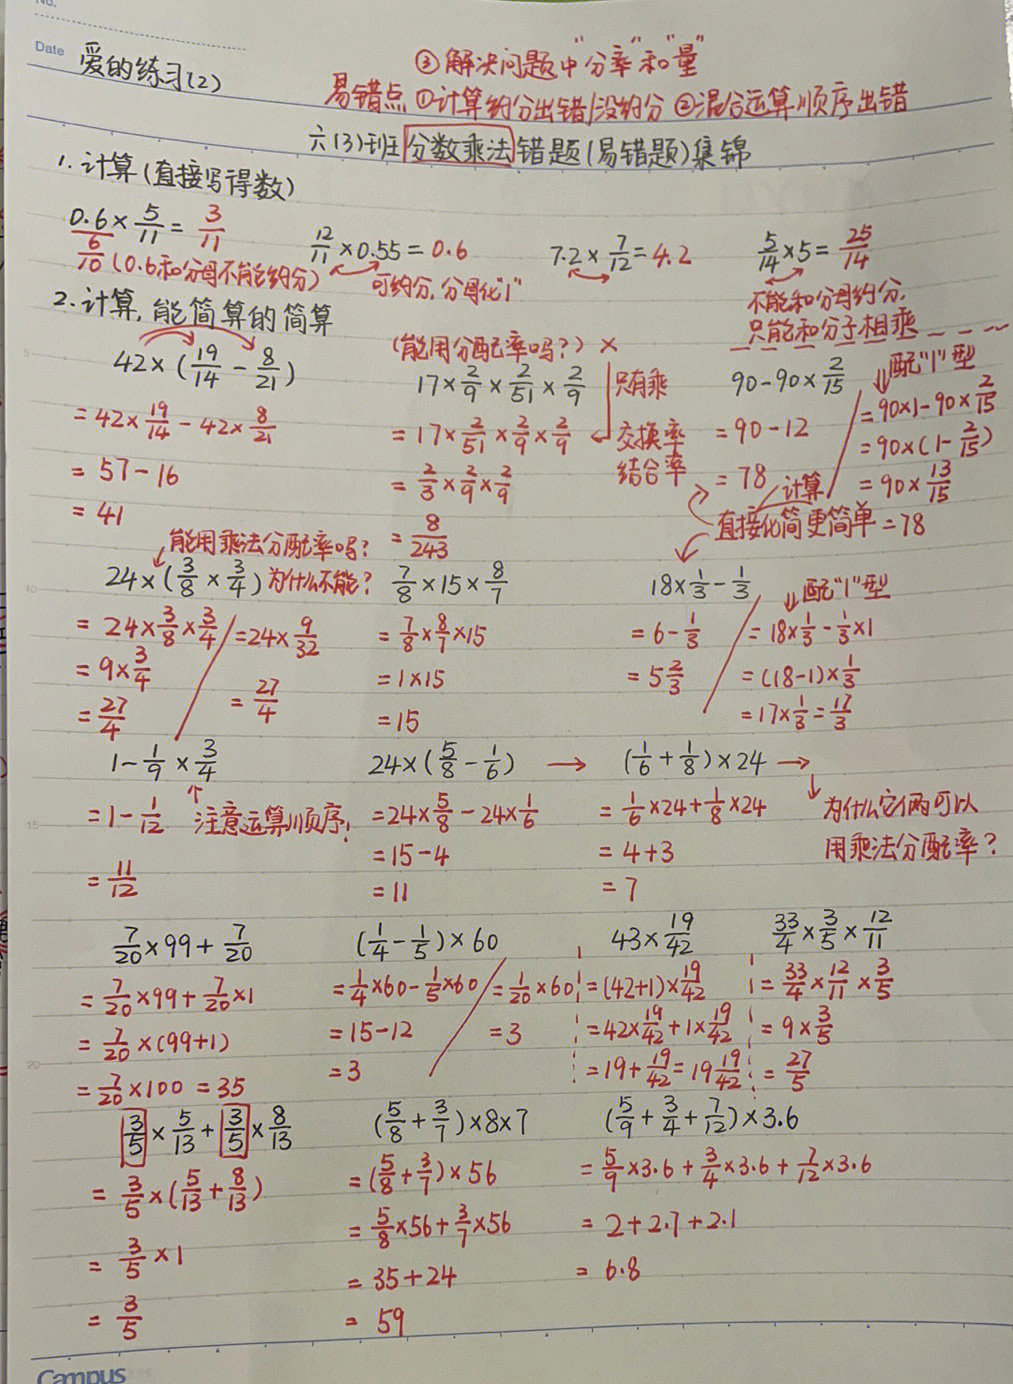 No.
Date 爱的练习(2)
③解决问题中"分率"和"量"
易错点 ①计算约分出错/没约分 ②混合运算顺序出错
六(3)班 分数乘法 错题(易错题)集锦
1. 计算(直接写得数)
0.6×5/11=3/11 12/11×0.55=0.6 7.2×7/12=4.2 5/14×5=25/14
6/10(0.6和分母不能约分) 可约分,分母化"1" 不能和分母约分,
只能和分子相乘
2. 计算,能简算的简算
42×(19/14-8/21)
=42×19/14-42×8/21
=57-16
=41
(能用分配率吗?)×
17×2/9×2/51×2/9
=17×2/51×2/9×2/9
=2/3×2/9×2/9
=8/243
只有乘
交换率
结合率
90-90×2/15
=90-12
=78
配"1"型
=90×1-90×2/15
=90×(1-2/15)
=90×13/15
=78
计算
直接化简更简单
能用乘法分配率吗?
24×(3/8×3/4)为什么不能?
=24×3/8×3/4
=9×3/4
=27/4
=24×9/32
=27/4
7/8×15×8/7
=7/8×8/7×15
=1×15
=15
18×1/3-1/3
=6-1/3
=5 2/3
配"1"型
=18×1/3-1/3×1
=(18-1)×1/3
=17×1/3=17/3
1-1/9×3/4
=1-1/12
=11/12
注意运算顺序!
24×(5/8-1/6) →
=24×5/8-24×1/6
=15-4
=11
(1/6+1/8)×24 →
=1/6×24+1/8×24
=4+3
=7
为什么它俩可以
用乘法分配率?
7/20×99+7/20
=7/20×99+7/20×1
=7/20×(99+1)
=7/20×100=35
(1/4-1/5)×60
=1/4×60-1/5×60
=15-12
=3
=1/20×60
=3
43×19/42
=(42+1)×19/42
=42×19/42+1×19/42
=19+19/42=19 19/42
33/4×3/5×12/11
=33/4×12/11×3/5
=9×3/5
=27/5
3/5×5/13+3/5×8/13
=3/5×(5/13+8/13)
=3/5×1
=3/5
(5/8+3/7)×8×7
=(5/8+3/7)×56
=5/8×56+3/7×56
=35+24
=59
(5/9+3/4+7/12)×3.6
=5/9×3.6+3/4×3.6+7/12×3.6
=2+2.7+2.1
=6.8
Campus